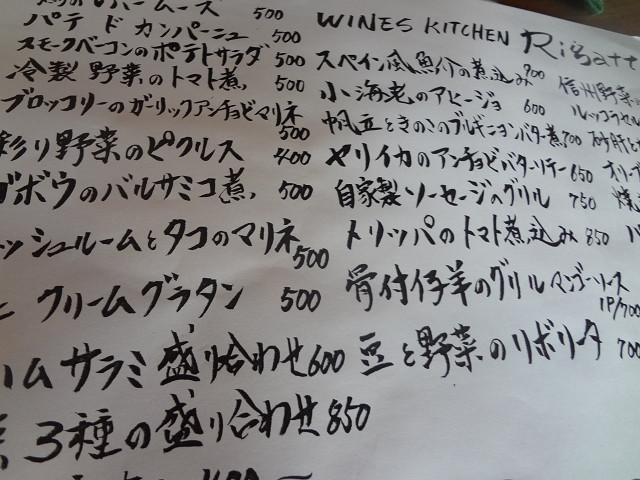 WINES KITCHEN Rigatt
ムース 500
パテ ド カンパーニュ 500
スモークベーコンのポテトサラダ 500
冷製 野菜のトマト煮 500
ブロッコリーのガーリックアンチョビマリネ 500
彩り野菜のピクルス 400
ゴボウのバルサミコ煮 500
ッシュルームとタコのマリネ 500
と クリームグラタン 500
ハムサラミ盛り合わせ 600
3種の盛り合わせ 850
スペイン風魚介の煮込み 900
小海老のアヒージョ 600
帆立ときのこのブルギニヨンバター煮 700
ヤリイカのアンチョビバターソテー 650
自家製ソーセージのグリル 750
トリッパのトマト煮込み 850
骨付仔羊のグリル マンゴーソース
1P/700
豆と野菜のリボリータ 700
信州野菜
ルッコラセル